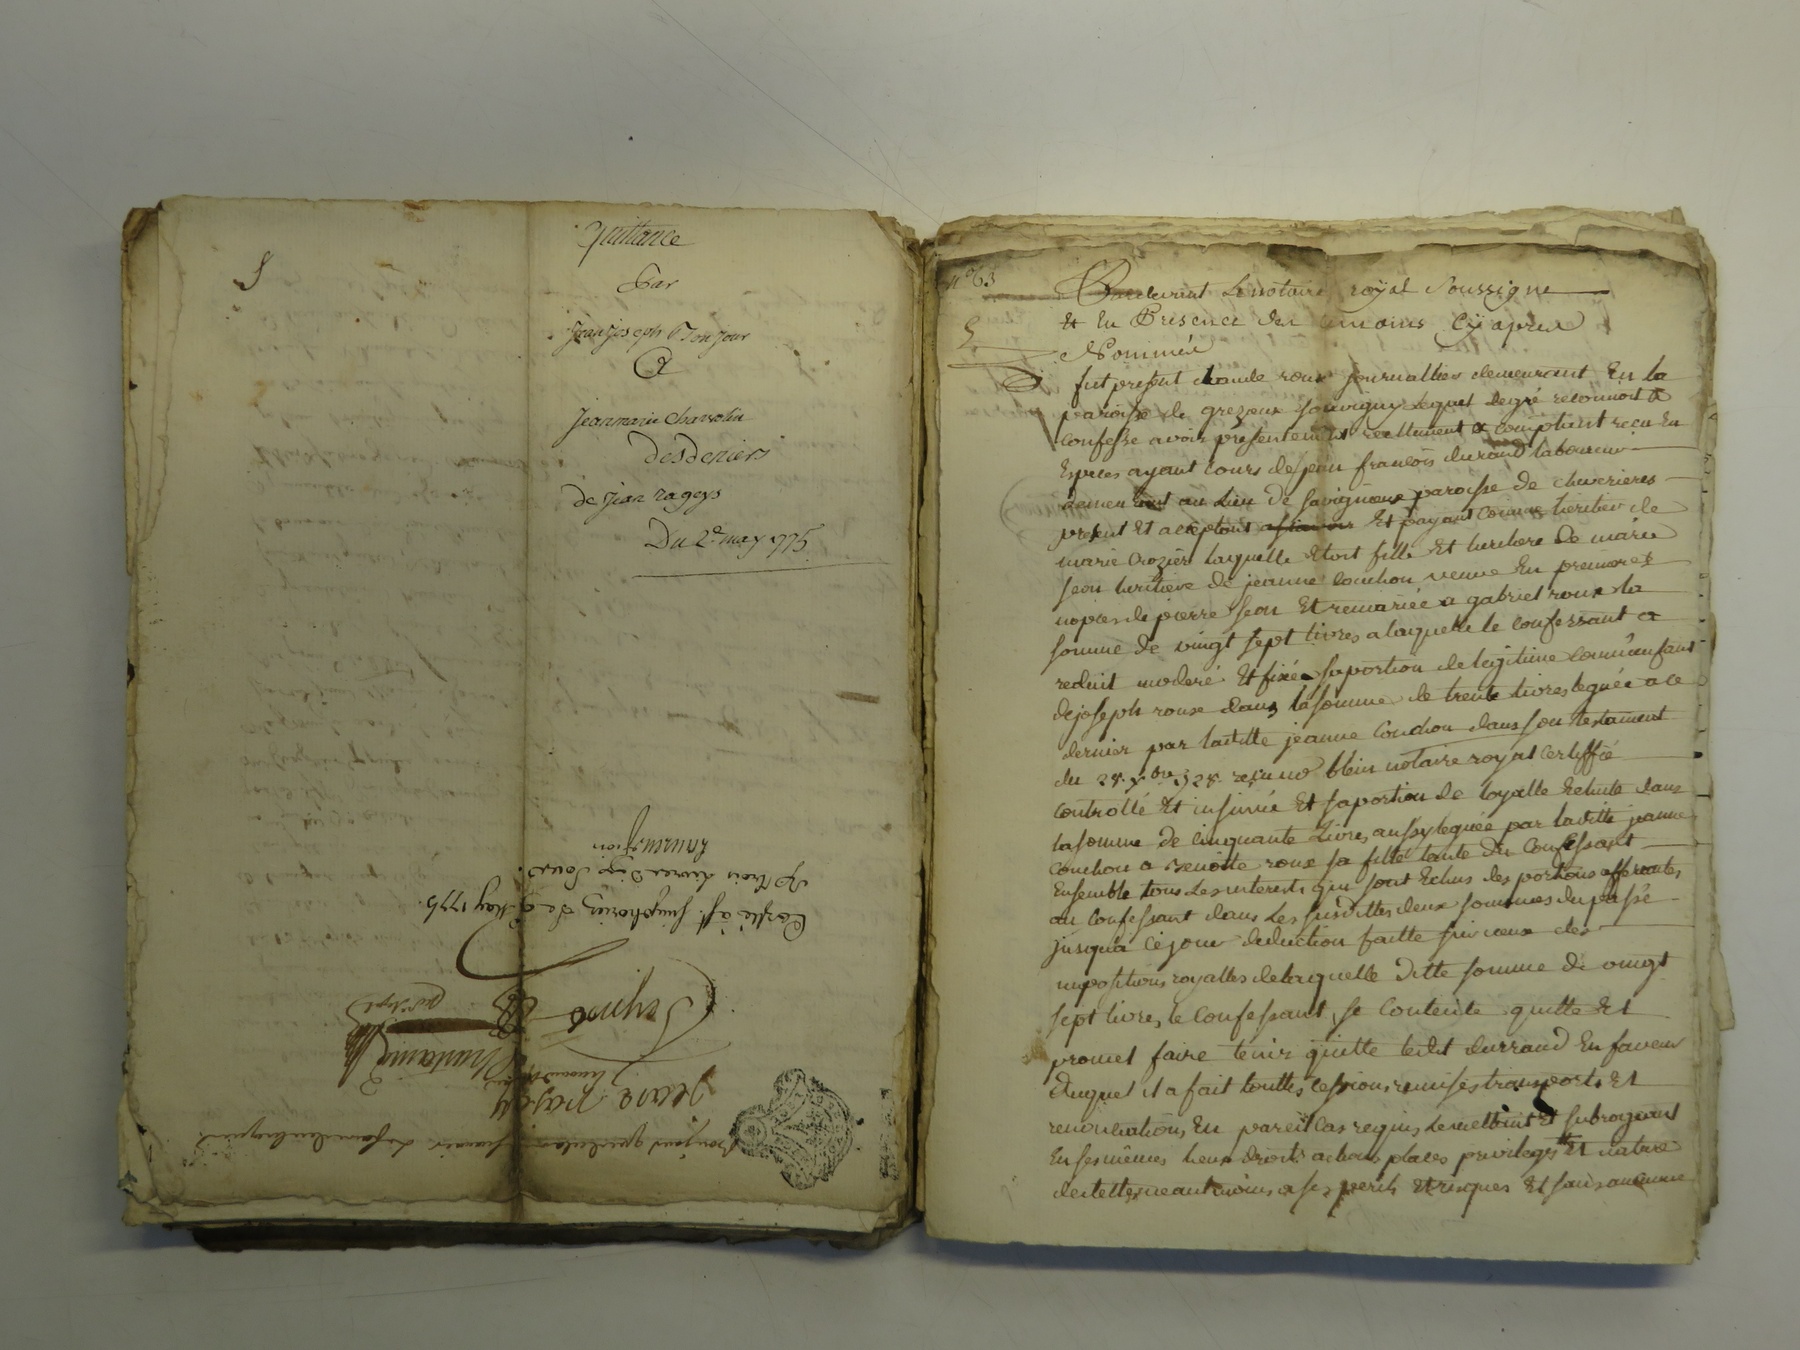 5
Quittance
Par
Jean Joseph Bonjour
A
Jeanmarie Chavrolin
des deniers
de Jean rageys
Du 2e may 1775
Enumission
Conllé à st. simphorien le 9 May 1775.
jean ragey
n° 63
Pardevant Le notaire royal Soussigné
5
Et En Présence des temoins Cy après
Nommés
fut présent claude roux journallier demeurant En la
paroisse de grezieux souvigny lequel de gré reconnoit &
confesse avoir présentement réellement & comptant recu En
Especes ayant cours de jean francois durand laboureur
demeurant au Lieu de savigneux paroisse de chevrieres
présent Et acceptant Et payant comme heritier de
marie Crozier laquelle Etoit fille Et heritiere de marie
seon heritiere de jeanne Conchon veuve En premieres
nopces de pierre seon Et remariée a gabriel roux la
somme de vingt sept livres a laquelle le confessant a
reduit moderé Et fixée sa portion de legitime comme enfant
de joseph roux dans la somme de trente livres leguée a ce
dernier par laditte jeanne Conchon dans son testament
du 28. xbre recu me blein notaire royal certiffié
controllé Et insinué Et sa portion de loyalle Echute dans
la somme de Cinquante Livres aussy leguée par laditte jeanne
Conchon a benoite roux sa fille tante du Confessant
Ensemble tous Les interests qui sont Echus des portions afferantes
au Confessant dans Les susdittes deux sommes du passé
jusqua ce jour deduction faitte sur iceux des
impositions royalles de laquelle ditte somme de vingt
sept livres le Confessant se Contente quitte Et
promet faire tenir quitte ledit durand En faveur
duquel il a fait touttes cessions remises transports Et
renonciations En pareil cas requis Le mettant Et subrogeant
En ses mêmes lieux droits actions places privileges Et nature
de dettes neantmoins a ses perils Et risques Et sans aucune